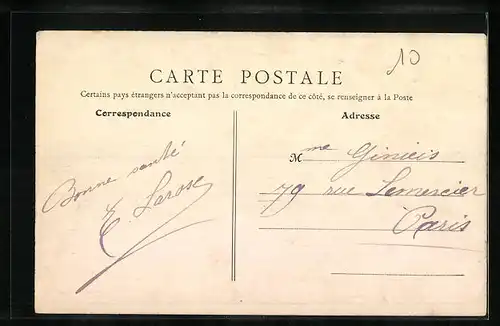 10
CARTE POSTALE
Certains pays étrangers n'acceptant pas la correspondance de ce côté, se renseigner à la Poste
Correspondance
Bonne santé
E. Larose
Adresse
Mme
79 rue Lemercier
Paris